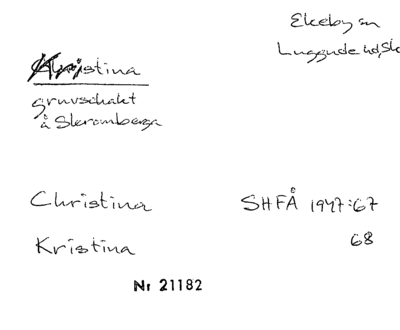 Ekeby sn
Luggude hd, Sk
Christina
gruvschakt
å Skromberga
Christina SHFÅ 1947:67
Kristina 68
Nr 21182